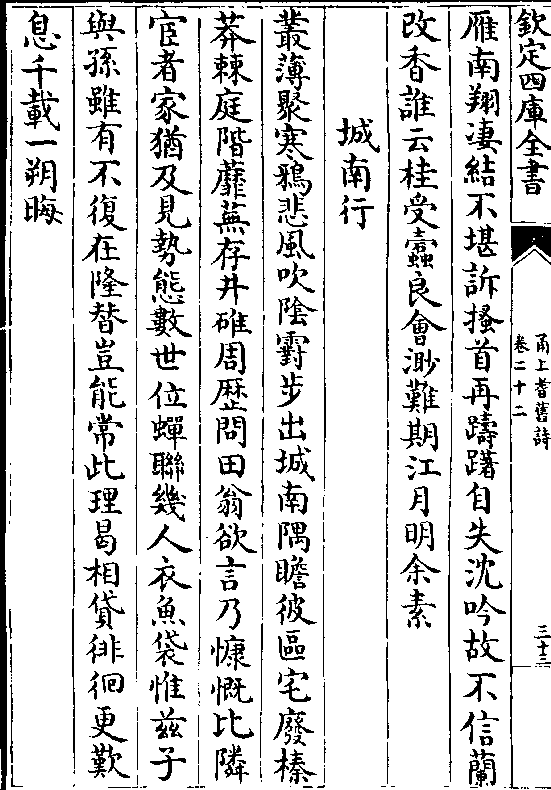 欽定四庫全書
甬上耆舊詩
卷二十二
三十三
雁南翔淒結不堪訴搔首再躊躇自失沈吟故不信蘭
改香誰云桂受蠹良會渺難期江月明余素
城南行
叢薄聚寒鴉悲風吹陰霨步出城南隅瞻彼區宅廢榛
莽棘庭階蘼蕪存井碓周歷問田翁欲言乃慷慨比隣
宦者家猶及見勢態數世位蟬聯幾人衣魚袋惟茲子
與孫雖有不復在隆替豈能常此理曷相貸徘徊更歎
息千載一朔晦